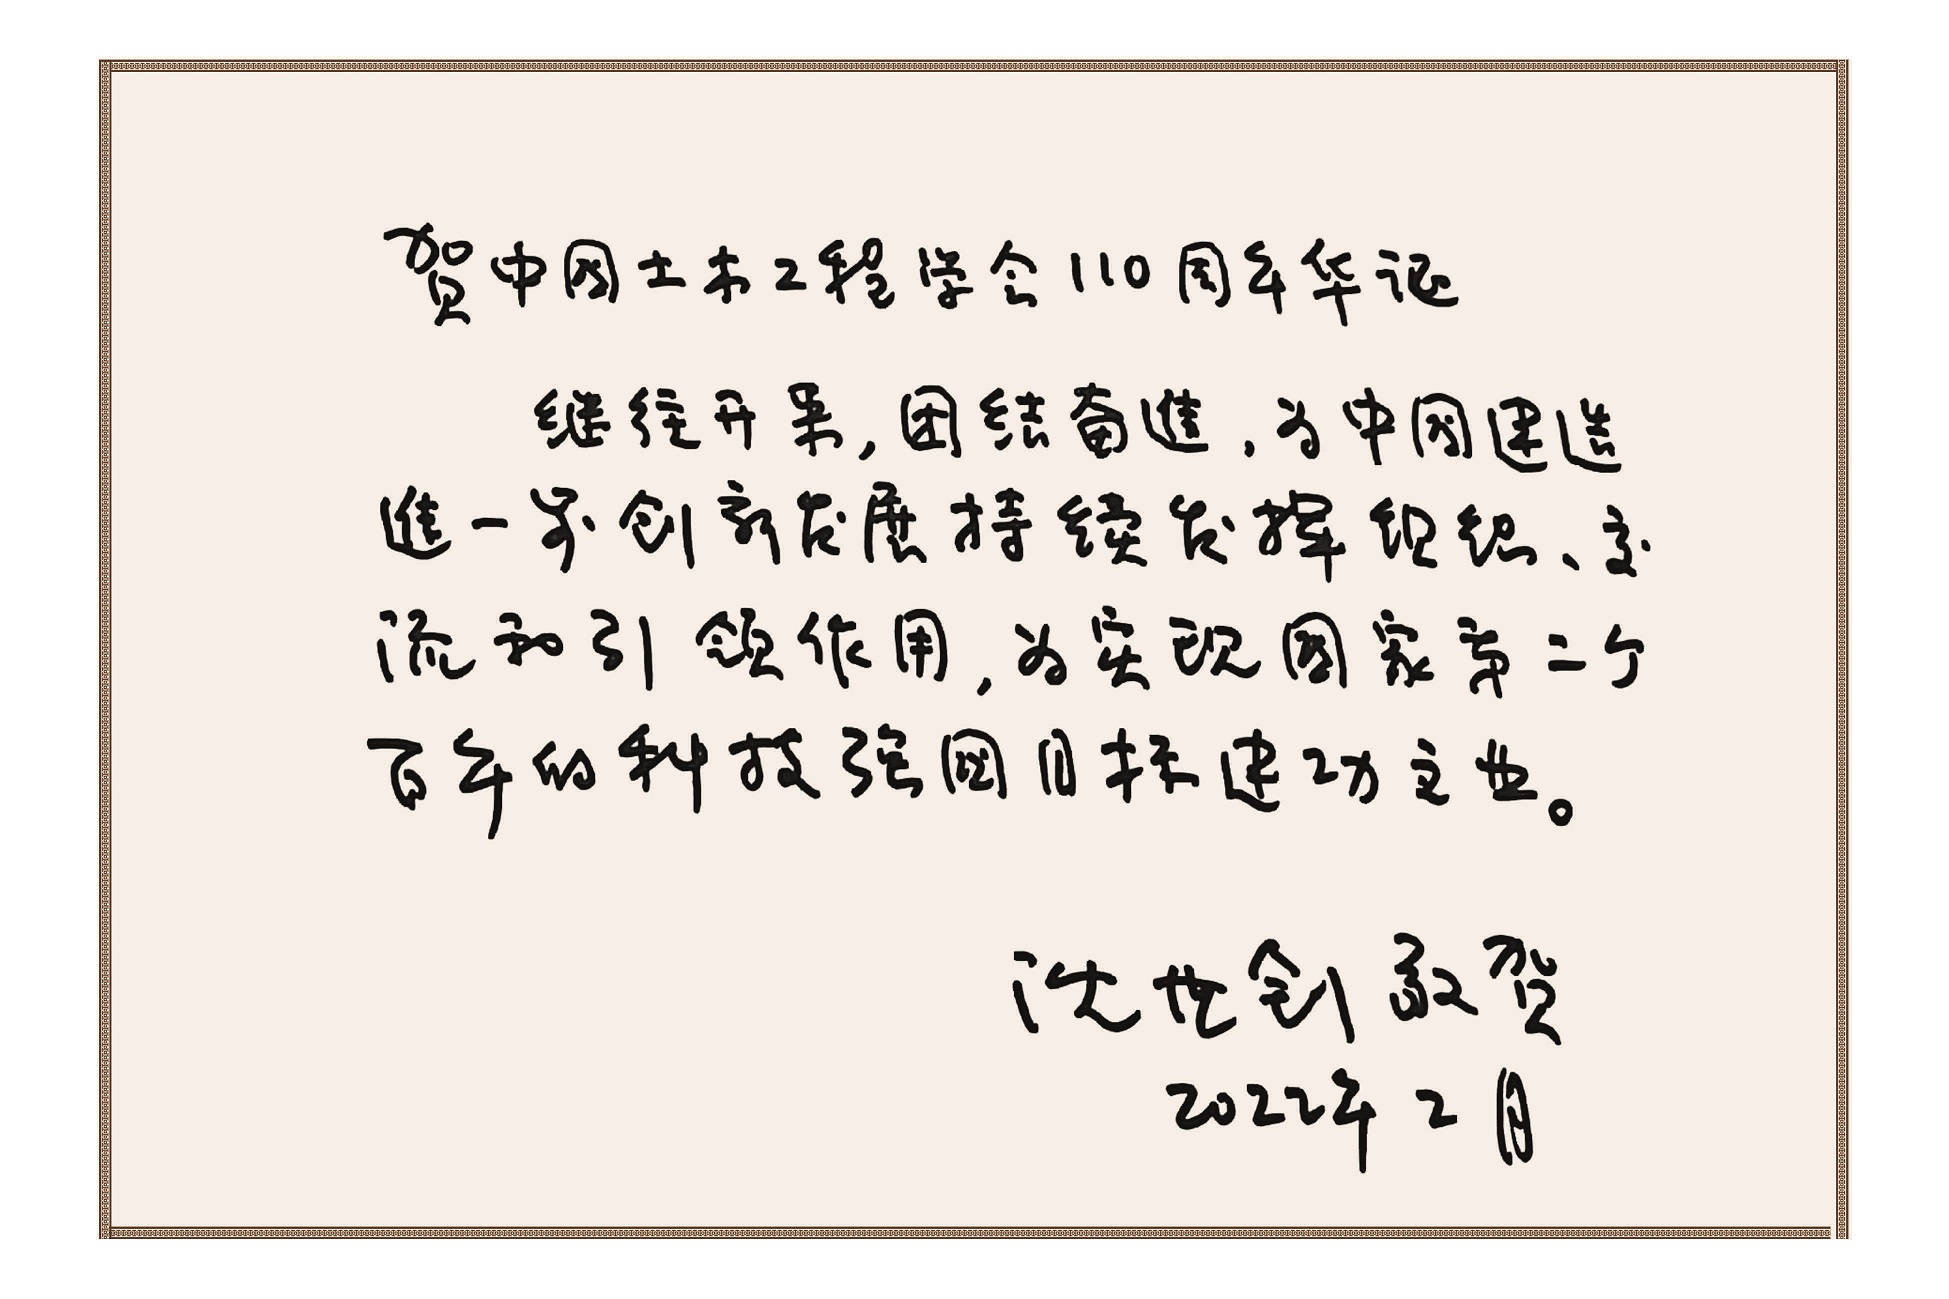 贺中国土木工程学会110周年华诞
继往开来,团结奋進,为中国建造
進一步创新发展持续发挥组织、交
流和引领作用,为实现国家第二个
百年的科技强国目标建功立业。
沈世钊敬贺
2022年2月